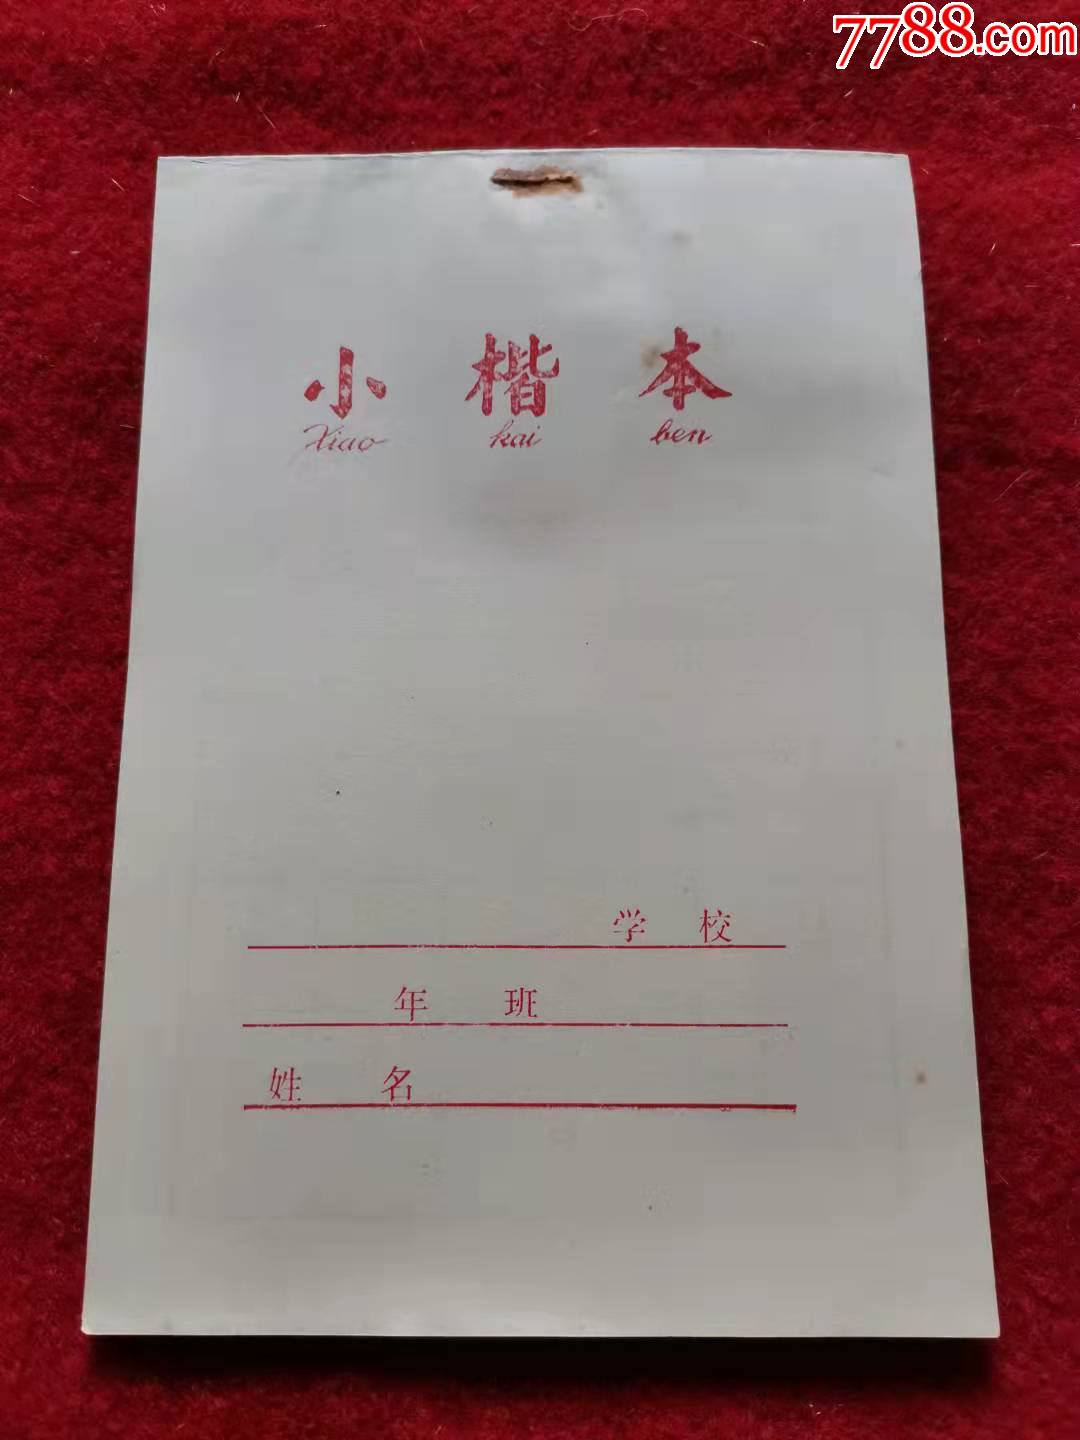 7788.com
小楷本
Xiao kai ben
学校
年 班
姓名